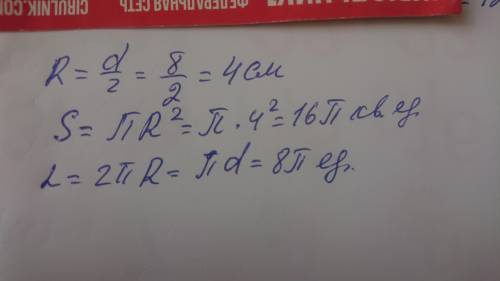 CIRULNIK.COM
ФЕДЕРАЛЬНАЯ СЕТЬ
R = d/2 = 8/2 = 4 см
S = πR² = π · 4² = 16π кв. ед.
L = 2πR = πd = 8π ед.